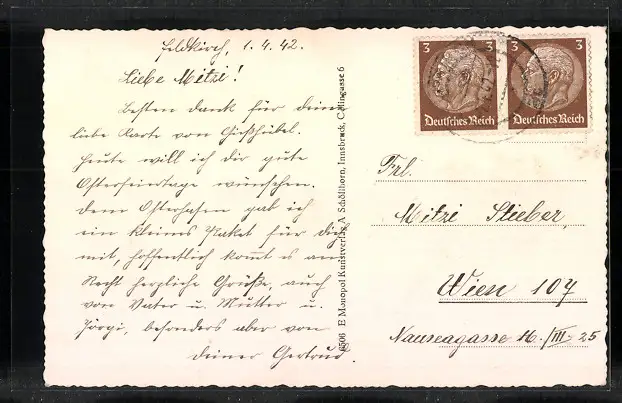 Feldkirch, 1.4.42.
Liebe Mitzi!
besten Dank für deine
liebe Karte von Gießhübel.
Heute will ich dir gute
Osterfeiertage wünschen.
Dem Osterhasen gab ich
ein kleines Paket für dich
mit, hoffentlich kommt es an.
Recht herzliche Grüße, auch
von Vater u. Mutter u.
Jörgi, besonders aber von
deiner Gertrud.
6506 E Monopol Kunstverlag A Schöllhorn, Innsbruck, Collingasse 6
3 3 3 3
Deutsches Reich Deutsches Reich
Frl.
Mitzi Stieber,
Wien 107
Nauseagasse 16./III. 25